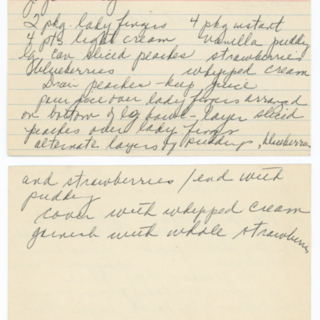 2 pkg. lady fingers 4 pkg instant
4 pts light cream vanilla pudding
lg can sliced peaches strawberries
blueberries whipped cream
Drain peaches - keep juice
pour juice over lady fingers arranged
on bottom of lg bowl - layer sliced
peaches over lady fingers
alternate layers of pudding, blueberries
and strawberries / end with
pudding
cover with whipped cream
garnish with whole strawberries